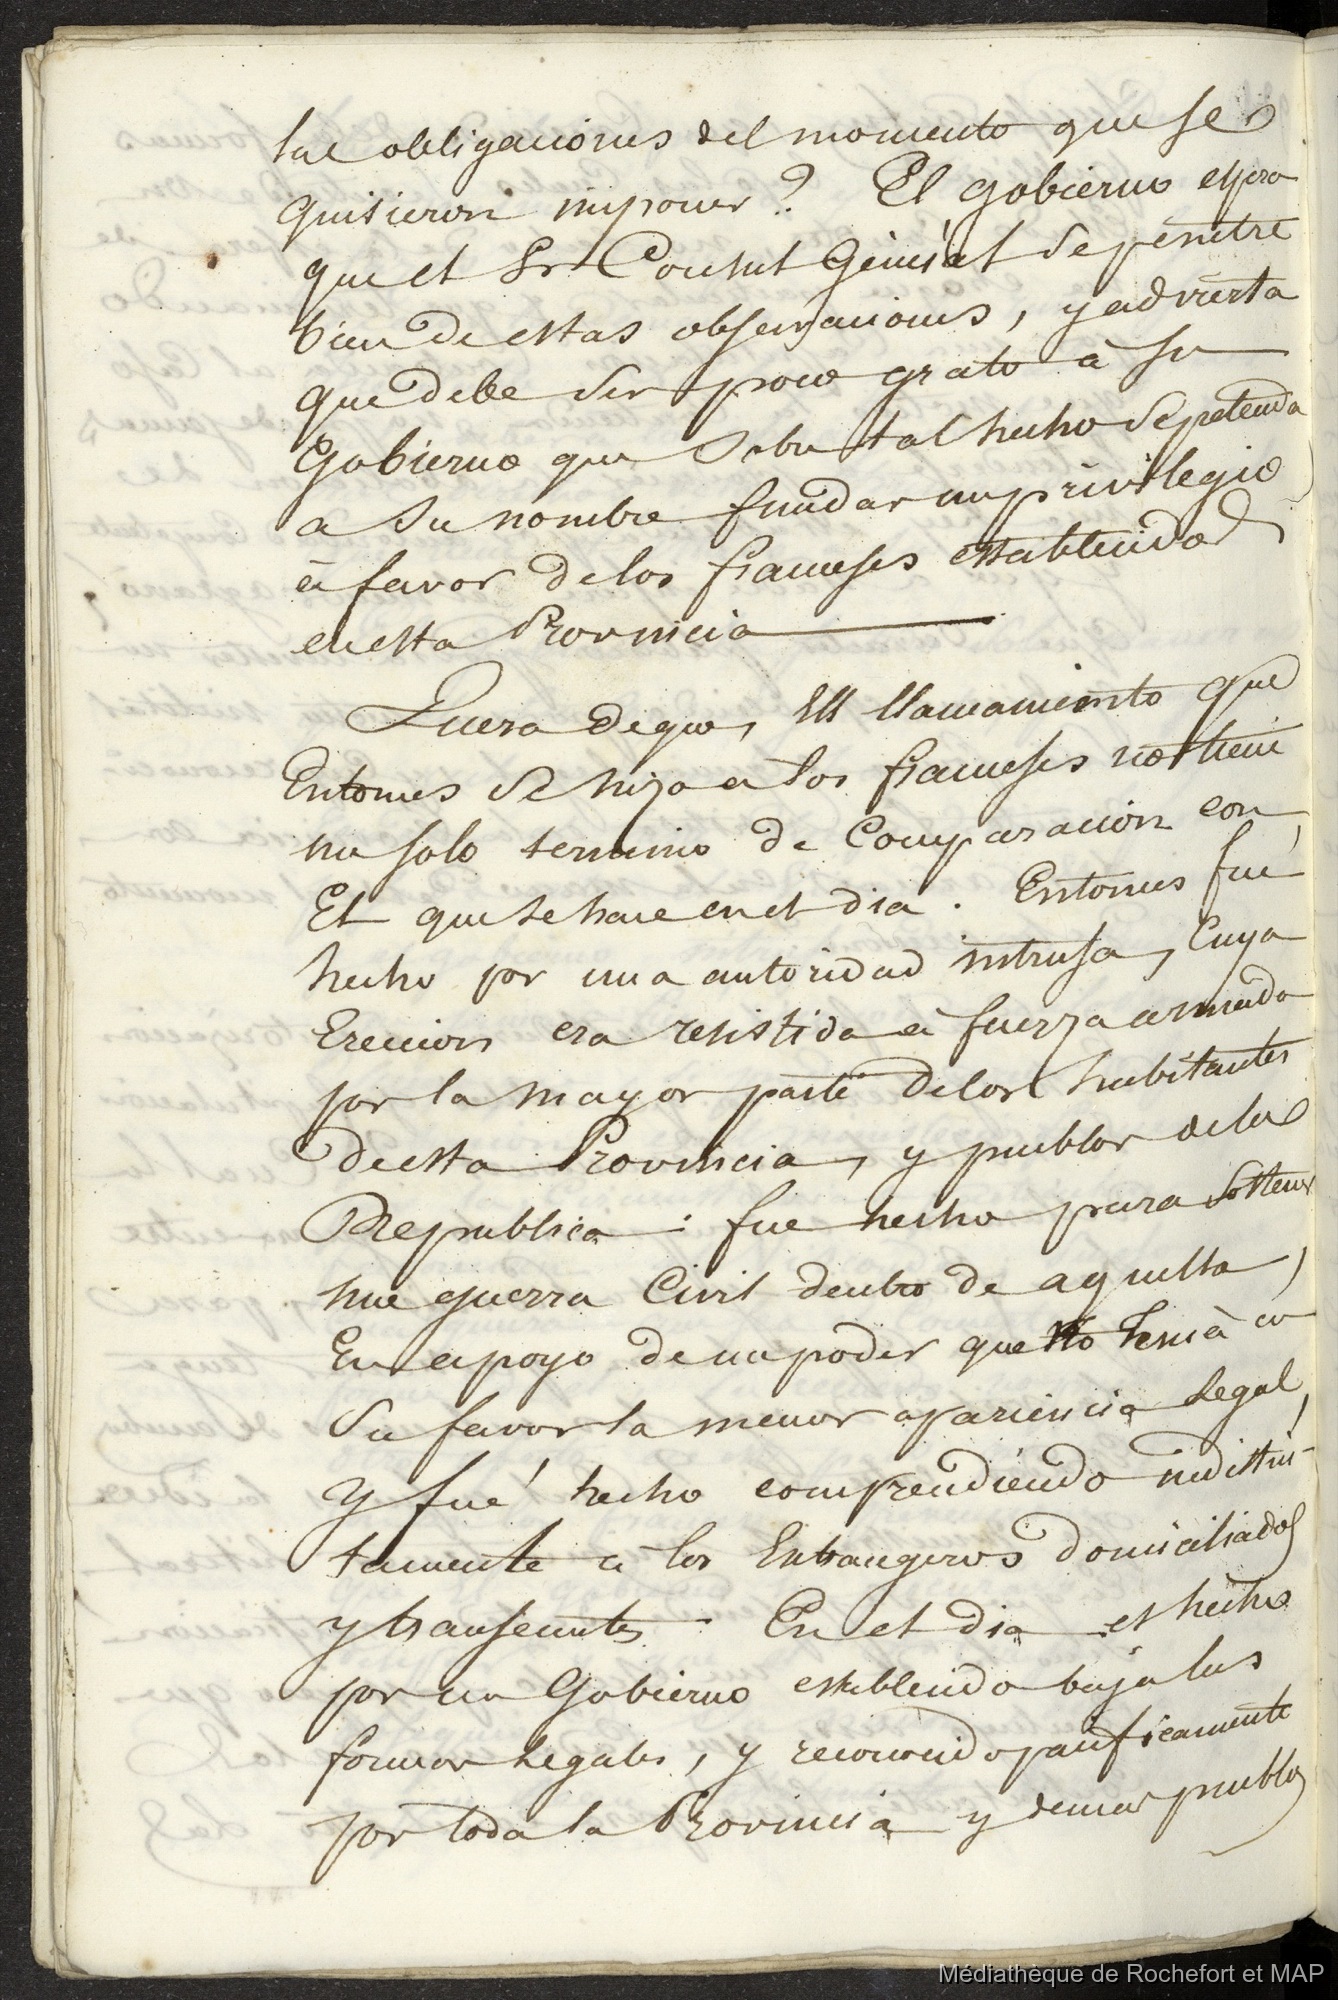 las obligaciones del momento que se
quisieron imponer? El gobierno espera
que el Sr Consul General se penetre
bien de estas observaciones, y advierta
que debe ser poco grato à su
Gobierno que sobre tal hecho se pretenda
a su nombre fundar un privilegio
à favor de los franceses establecidos
en esta Provincia
Fuera de que, el llamamiento que
Entonces se hizo a los franceses no tiene
un solo termino de Comparacion con
El que se hace en el dia. Entonces fué
hecho por una autoridad intrusa, Cuya
Ereccion era resistida à fuerza armada
por la mayor parte de los habitantes
de esta Provincia, y pueblos de la
Republica: fue hecho para sostener
una guerra Civil dentro de aquella,
En apoyo de un poder que No tenia à
su favor la menor apariencia legal,
Y fué hecho comprendiendo indistin-
tamente a los Extrangeros domiciliados
y transeuntes. En el dia es hecho
por un Gobierno establecido bajo las
formas legales, y reconocido pacificamente
por toda la Provincia y demas pueblos
Médiathèque de Rochefort et MAP